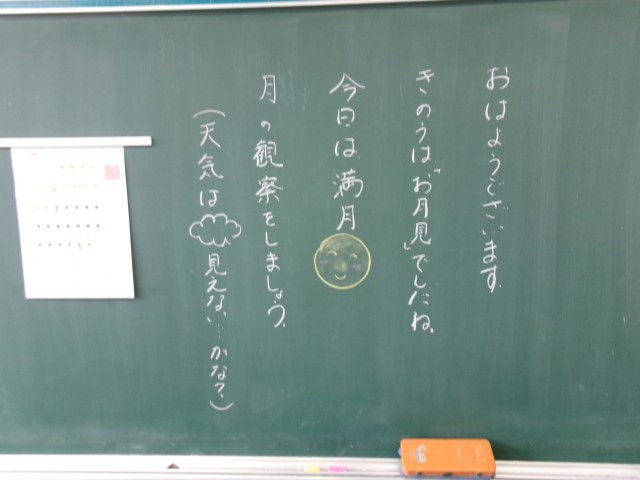 おはようございます。
きのうは、「お月見」でしたね。
今日は、満月
月の観察をしましょう。
（天気は見えない…かな？）